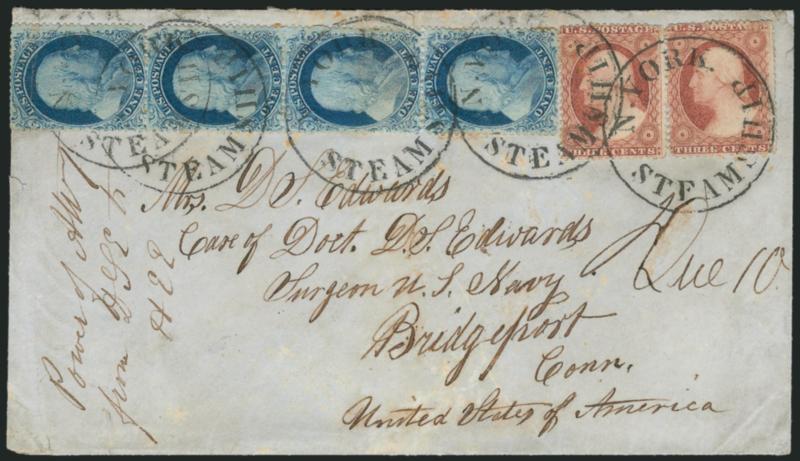 U.S. POSTAGE
ONE CENT
U.S. POSTAGE
ONE CENT
U.S. POSTAGE
ONE CENT
U.S. POSTAGE
ONE CENT
U.S. POSTAGE
THREE CENTS
U.S. POSTAGE
THREE CENTS
STEAMSHIP
N. YORK. STEAMSHIP
N. YORK. STEAMSHIP
N. YORK. STEAMSHIP
N. YORK. STEAMSHIP
Mrs. D. S. Edwards
Care of Doct. D. S. Edwards
Surgeon U. S. Navy
Bridgeport
Conn.
United States of America
Due 10
Power of
from